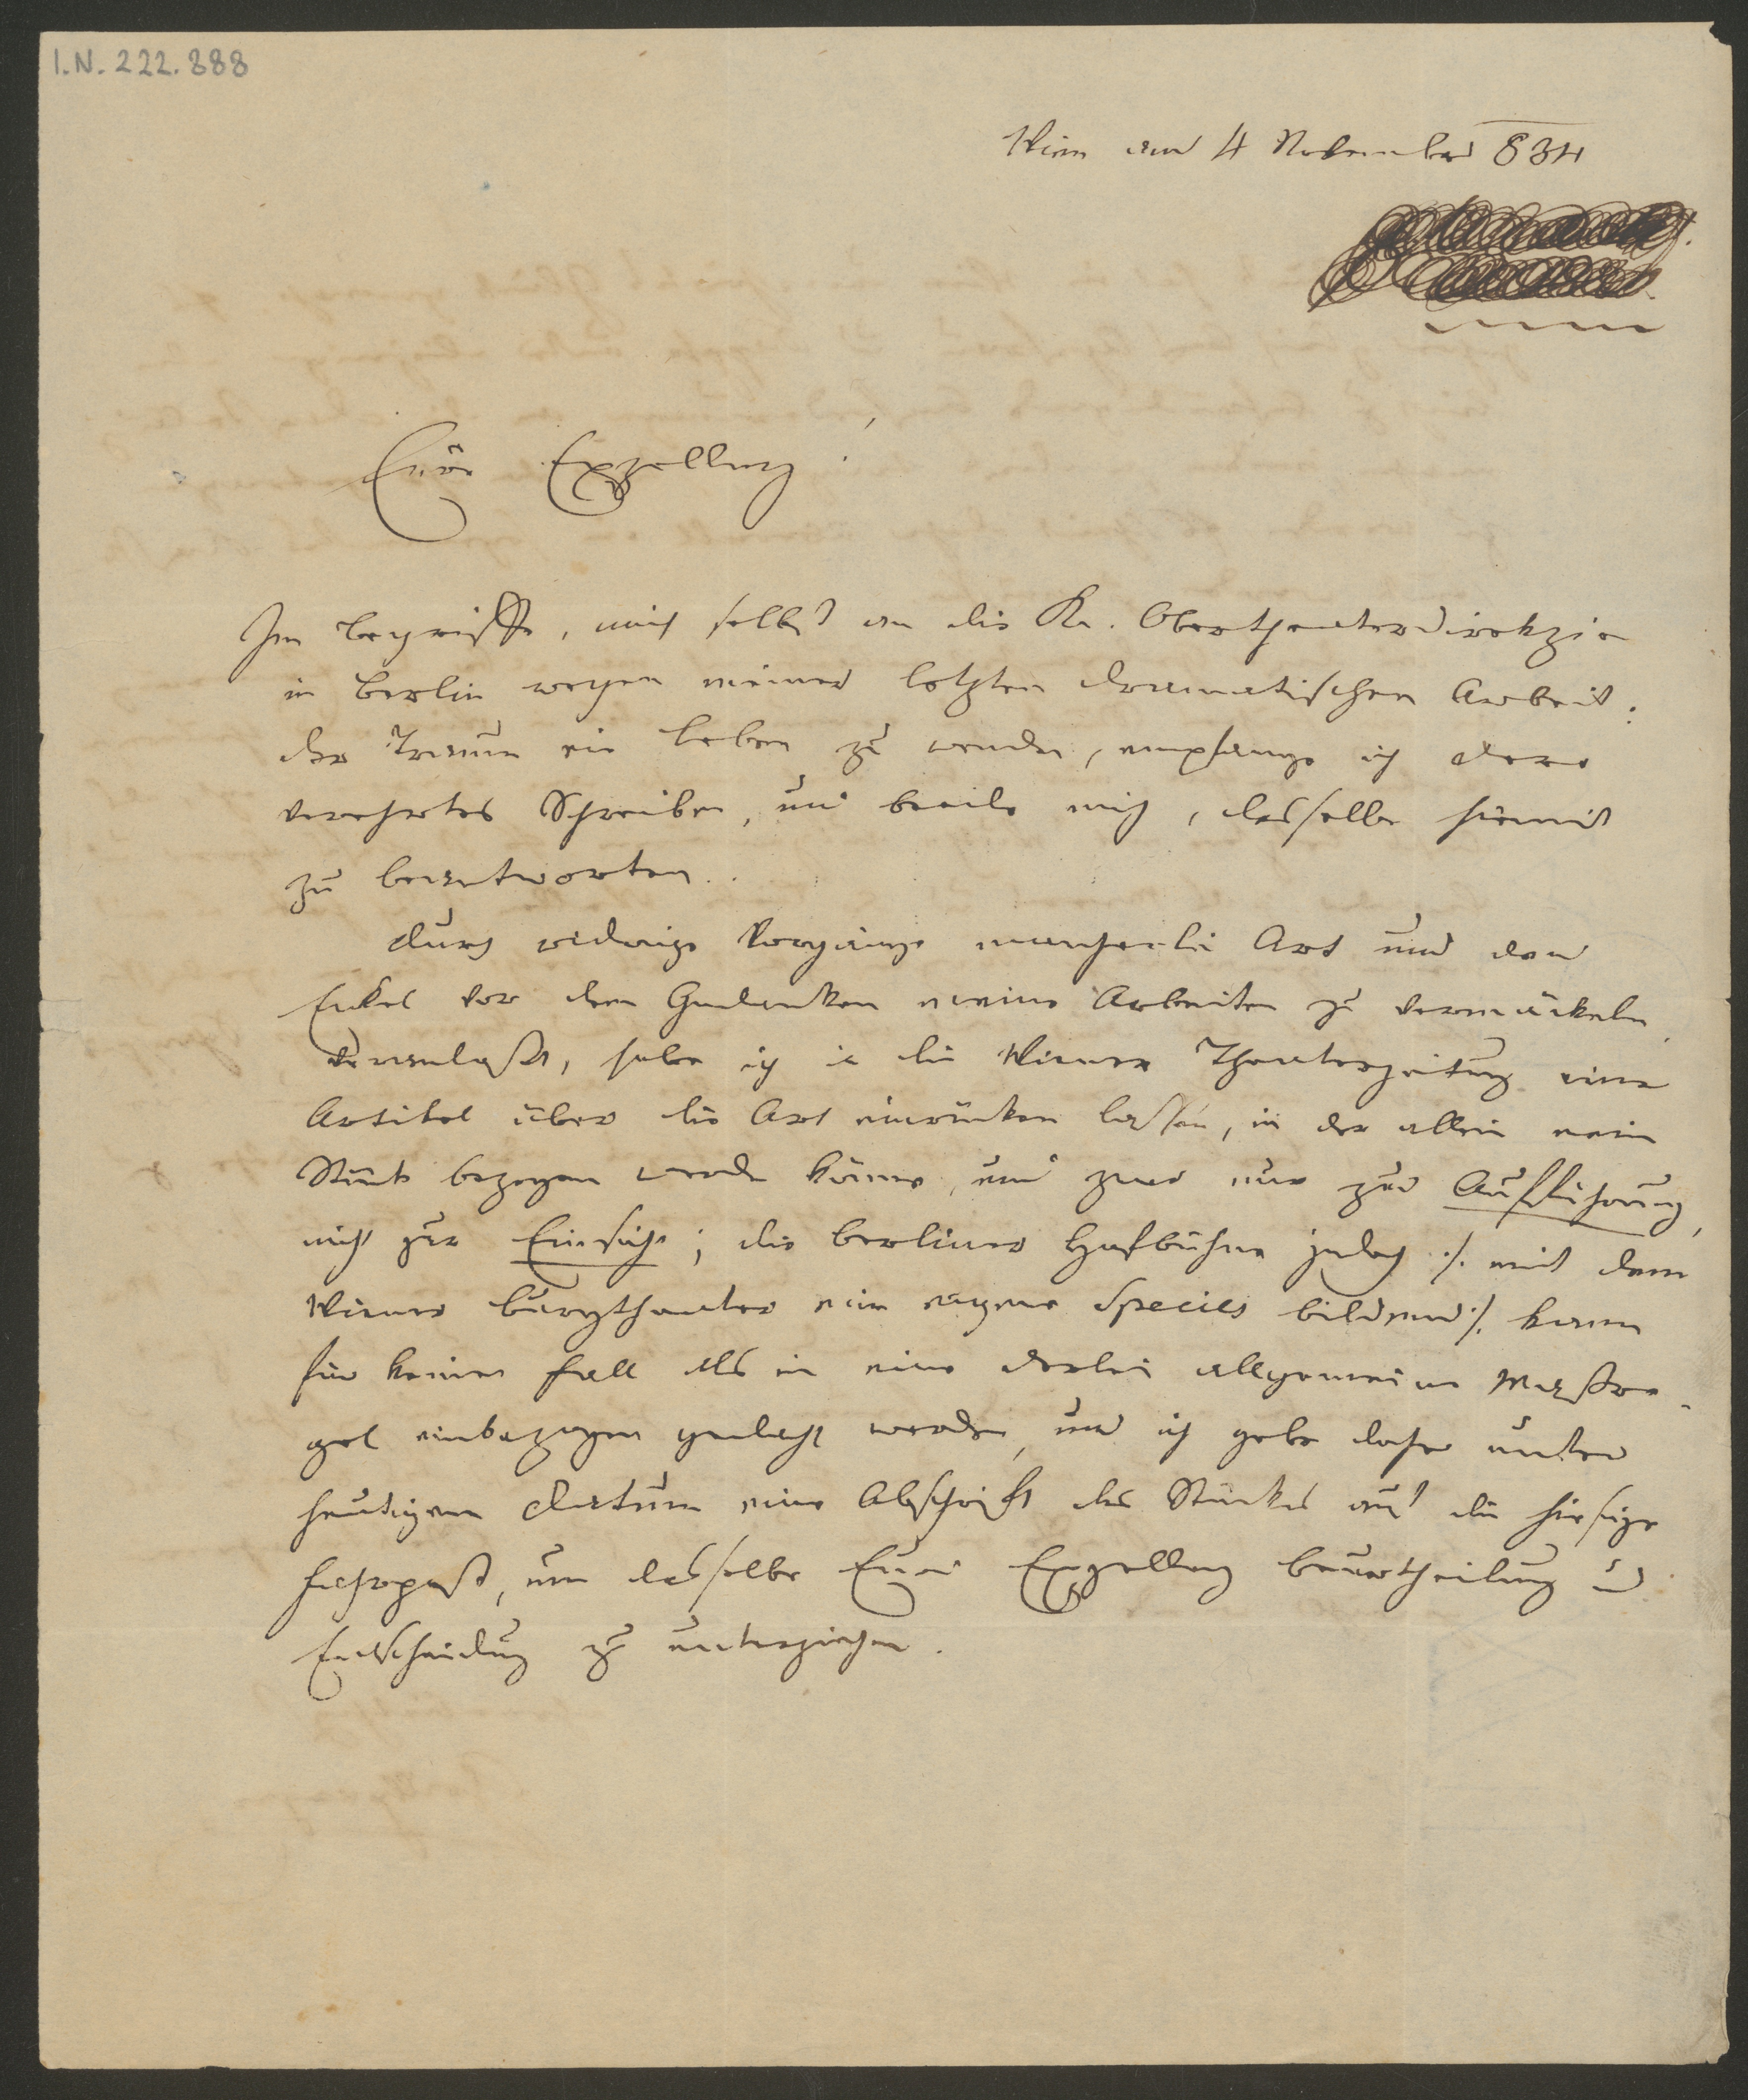 I.N. 222.888
Wien am 4 November 834
Eure Exzellenz!
Im Begriffe, mich selbst an die K. Obertheaterdirekzion
in Berlin wegen meiner letzten dramatischen Arbeit:
der Traum ein Leben zu wenden, empfange ich dero
verehrtes Schreiben, und beeile mich, dasselbe hiemit
zu beantworten.
Durch widrige Vorgänge mancherlei Art und den
Eckel vor dem Gedanken meine Arbeiten zu vermäckeln,
veranlaßt, habe ich in die Wiener Theaterzeitung einen
Artikel über die Art einrücken lassen, in der allein mein
Stück bezogen werden könne, und zwar nur zur Aufführung,
nicht zur Einsicht; die Berliner Hofbühne jedoch ./. mit dem
Wiener Burgtheater eine eigene Species bildend ./. kann
für keinen Fall als in eine derlei allgemeine Maßre-
gel einbezogen gedacht werden, und ich gebe daher unter
heutigem Datum eine Abschrift des Stückes auf die hiesige
Fahrpost, um dasselbe Eurer Exzellenz Beurtheilung u
Entscheidung zu unterziehen.